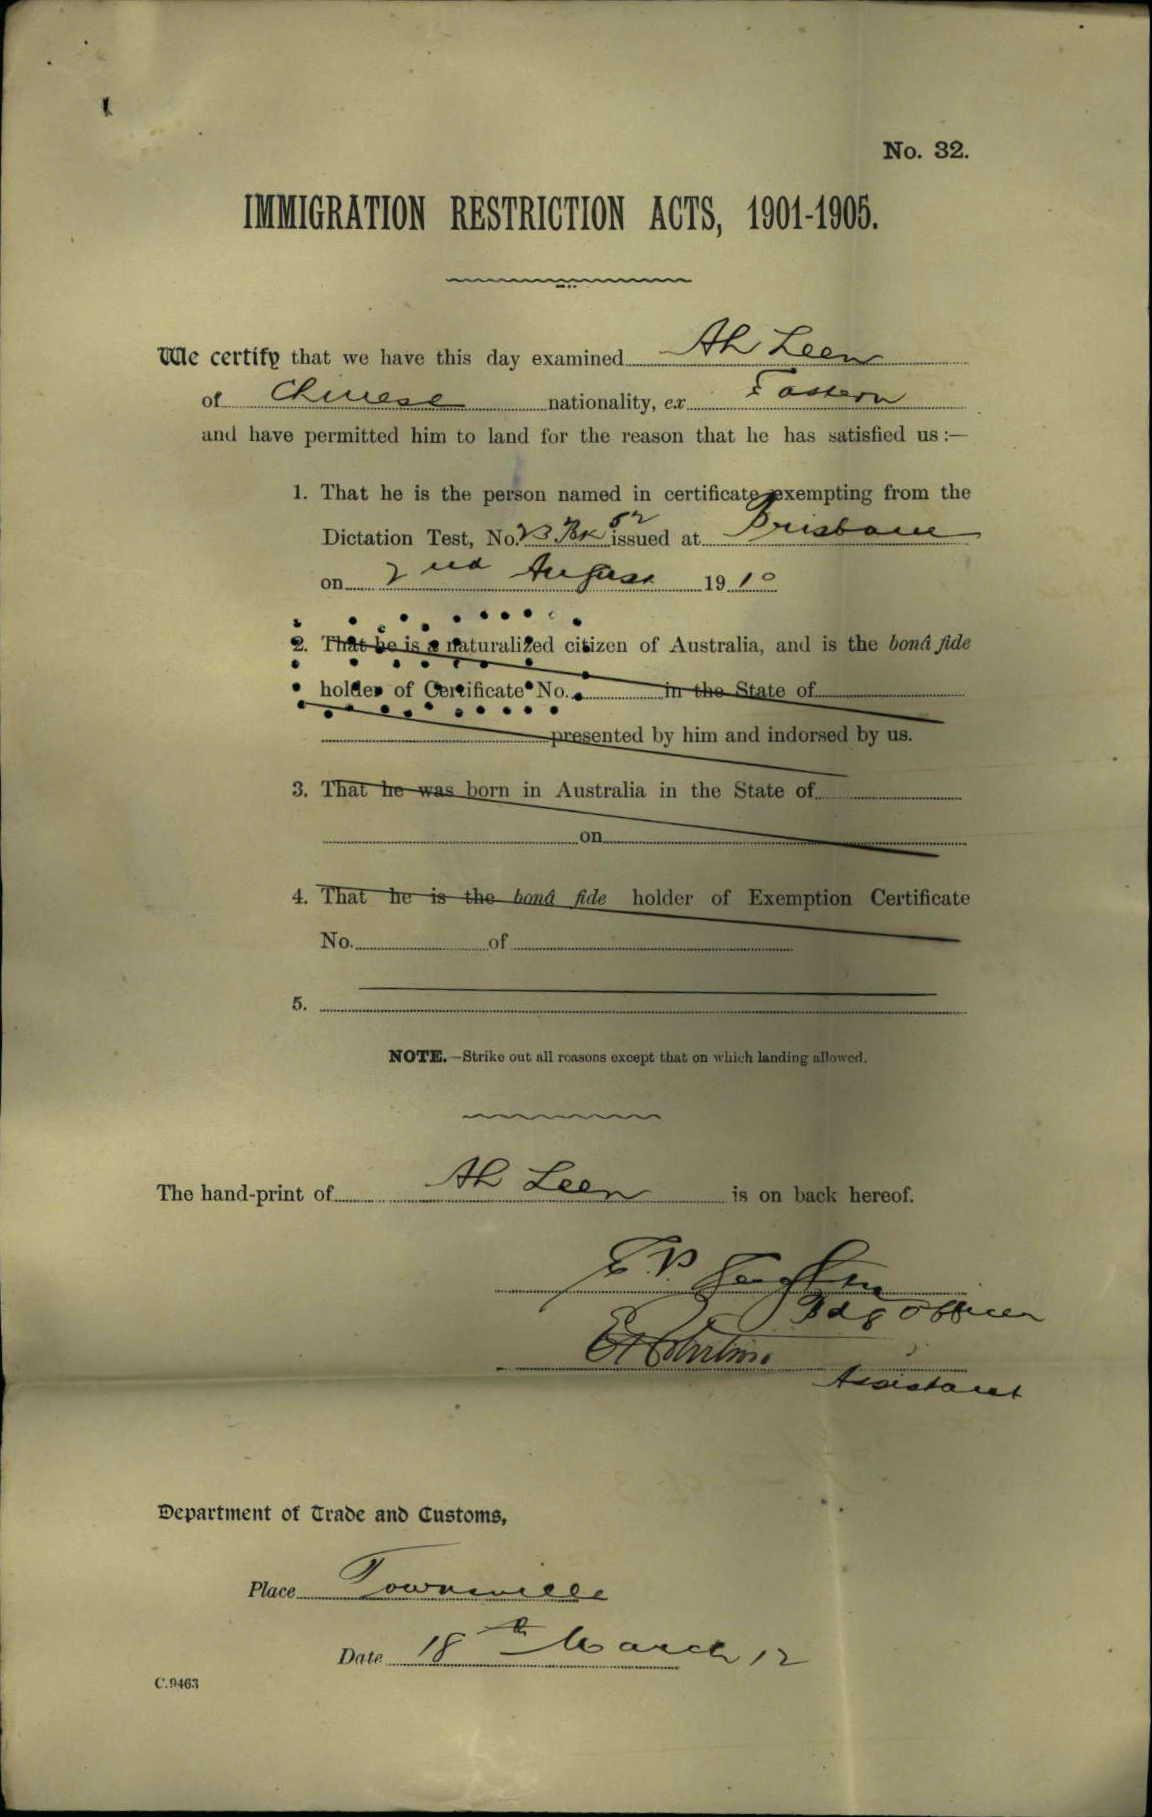 No. 32.
IMMIGRATION RESTRICTION ACTS, 1901-1905.
We certify that we have this day examined Ah Leen
of Chinese nationality, ex Eastern
and have permitted him to land for the reason that he has satisfied us :—
1. That he is the person named in certificate exempting from the
52
Dictation Test, No. B. Bk issued at Brisbane
on 2nd August 1910
2. That he is a naturalized citizen of Australia, and is the bonâ fide
holder of Certificate No. in the State of
presented by him and indorsed by us.
3. That he was born in Australia in the State of
on
4. That he is the bonâ fide holder of Exemption Certificate
No. of
5.
NOTE.—Strike out all reasons except that on which landing allowed.
The hand-print of Ah Leen is on back hereof.
E. P.
Bdg Officer
Assistant
Department of Trade and Customs,
Place Townsville
Date 18th March 12
C.9463